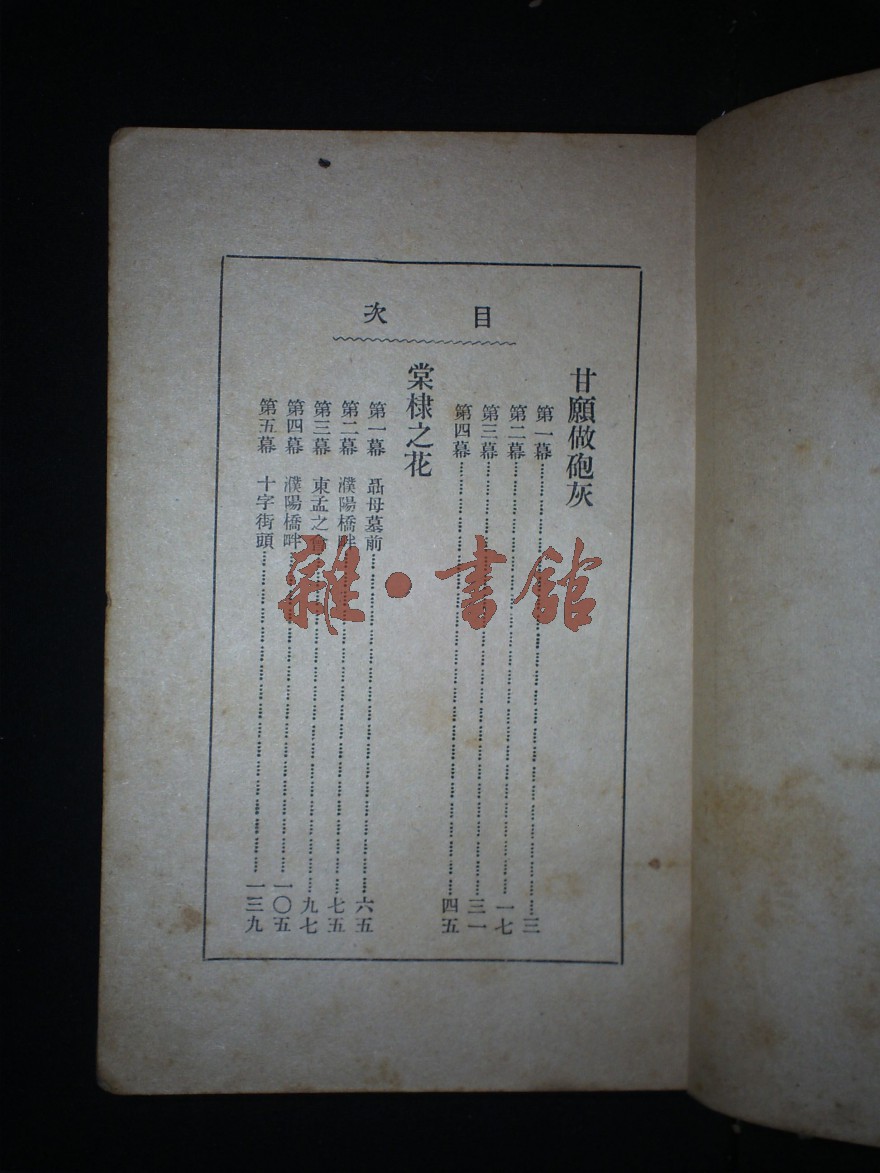 目次
甘願做砲灰
第一幕 三
第二幕 一七
第三幕 三一
第四幕 四五
棠棣之花
第一幕 聶母墓前 六五
第二幕 濮陽橋畔 七五
第三幕 東孟之會 九七
第四幕 濮陽橋畔 一〇五
第五幕 十字街頭 一三九
雜·書館